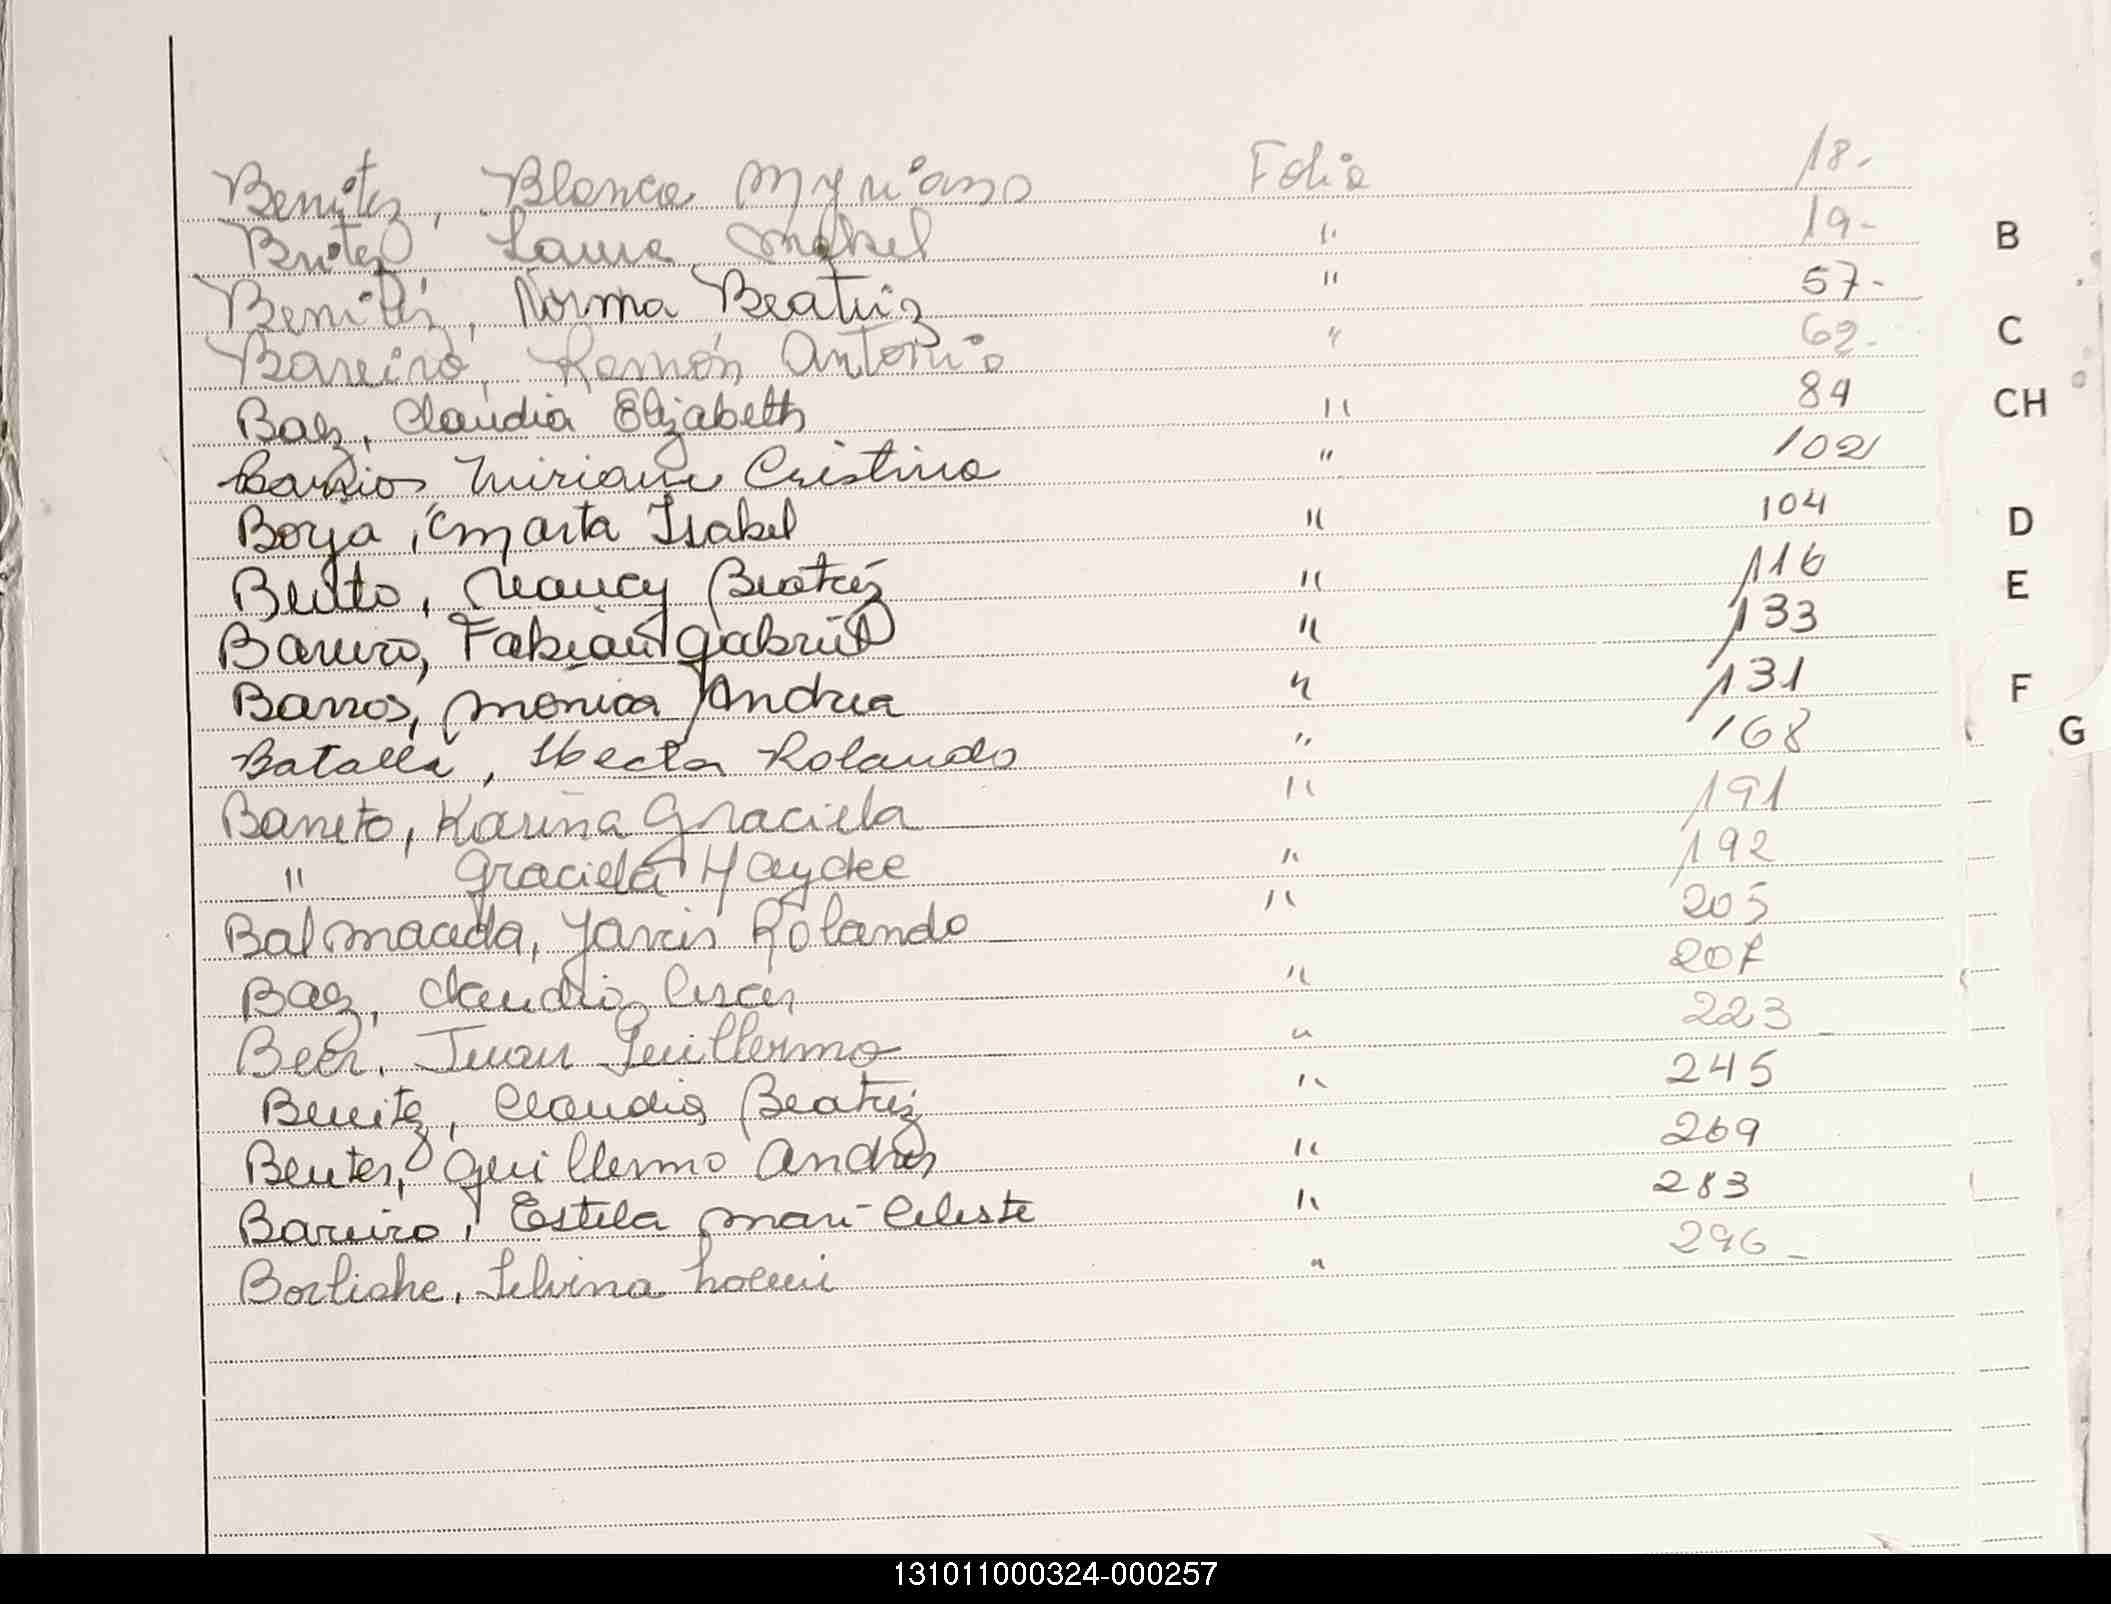 Benitez, Blanca Myriam Folio 18.-
Benitez Laura Mabel " 19-
Benitez, Norma Beatriz " 57-
Bareiro, Ramón Antonio " 62-
Baez, Claudia Elizabeth " 84
Barrios Miriam Cristina " 102
Borja, Marta Isabel " 104
Benito, Nancy Beatriz " 116
Bareiro, Fabian Gabriel " 133
Barros, Mónica Andrea " 131
Batalla, Hector Rolando " 168
Barreto, Karina Graciela " 191
" Graciela Haydee " 192
Balmaceda, Rolando " 205
Baez, Claudio Cesar " 207
Beer, Juan Guillermo " 223-
Benitez, Claudia Beatriz " 245
Guillermo Andres " 269
Bareiro, Estela Mari Celeste " 283
Silvina Noemi " 296-
B
C
CH
D
E
F
G
131011000324-000257